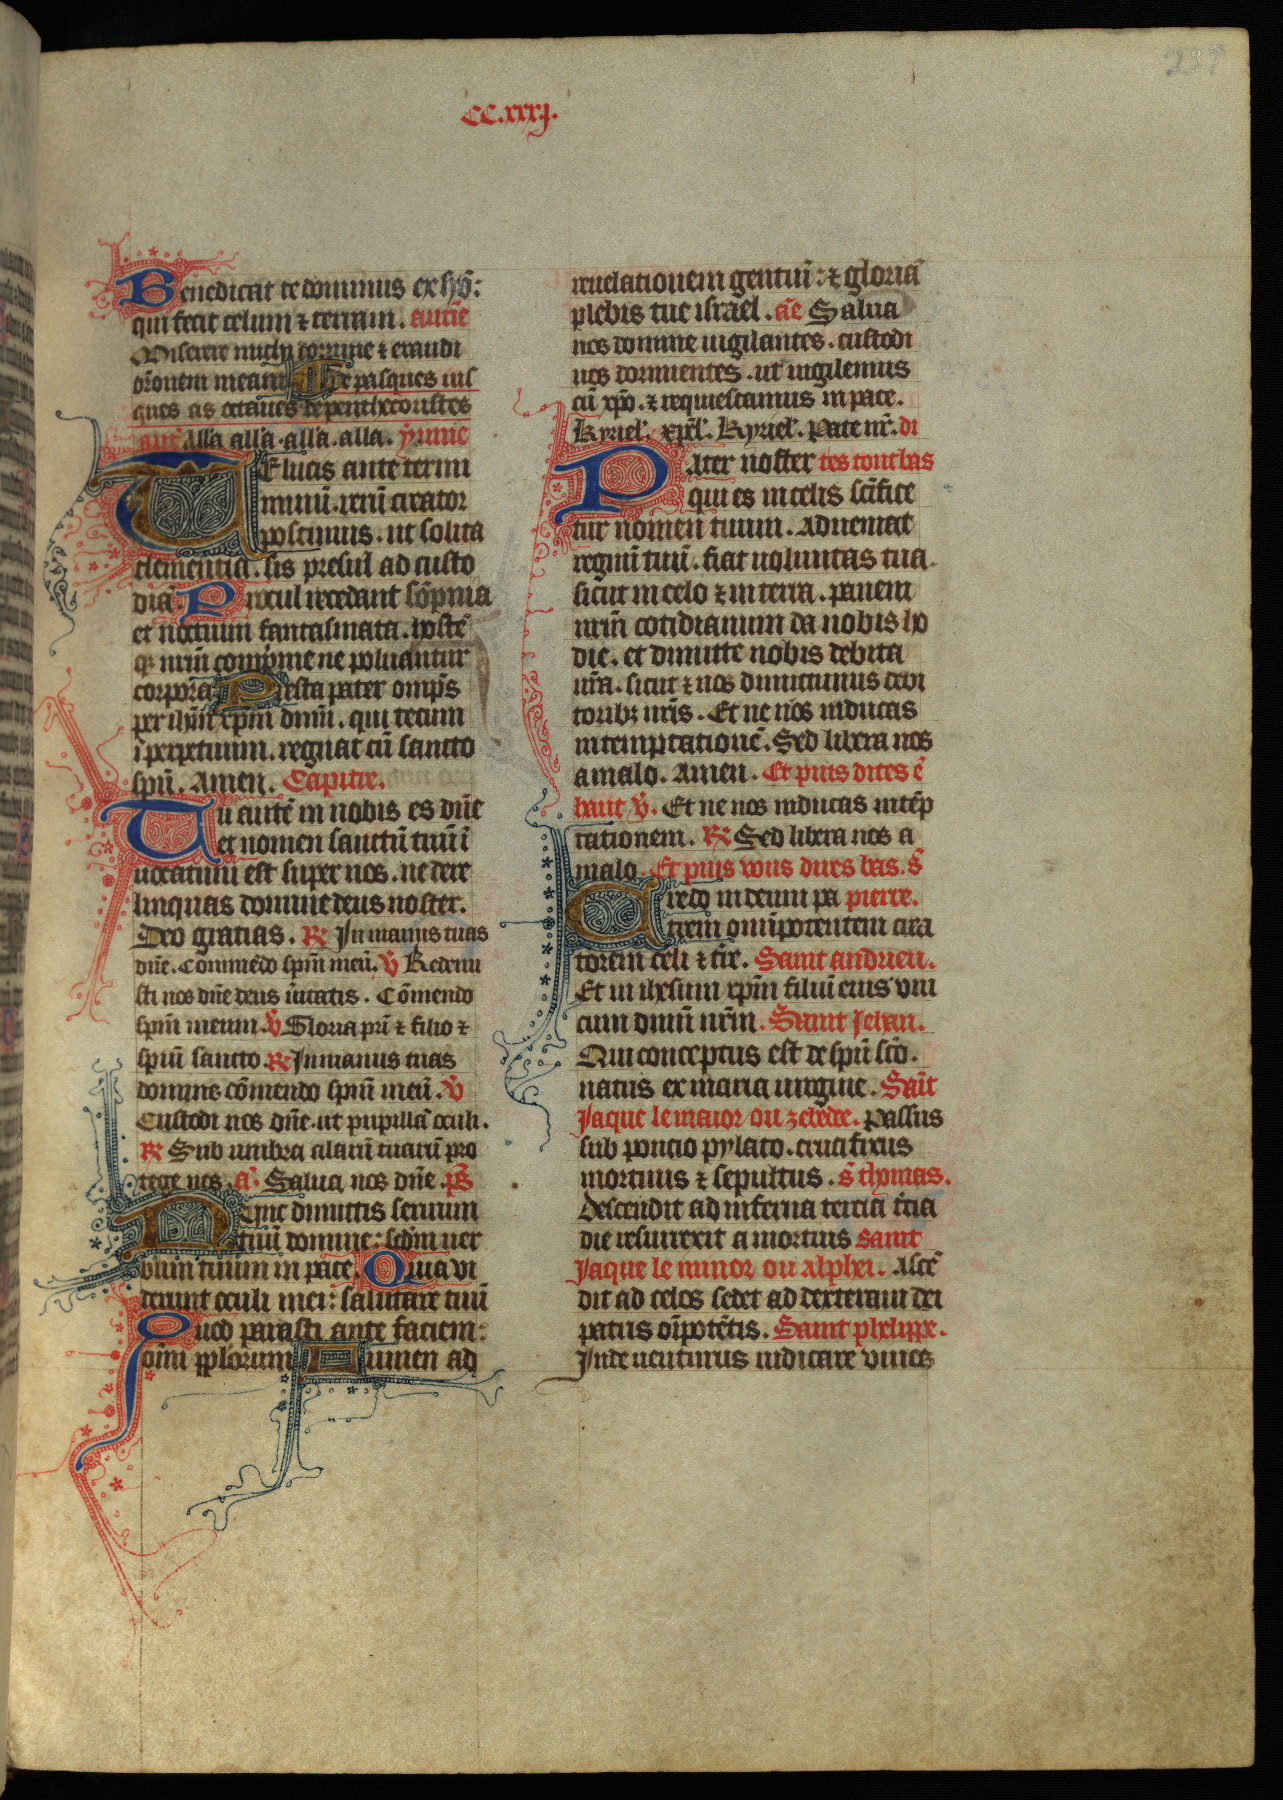 CC.xxxj.
Benedicat te dominus ex syō:
qui fecit celum ⁊ terram. antiē
Miserere michi domine ⁊ exaudi
orōnem meam De pasques ius
ques as octaues de penthecoustes
ant alla alla. alla. alla. ymne
TE lucis ante termi
minū. rerū creator
poscimus. ut solita
clementia. sis presul ad custo
diā. Procul recedant sōpnia
et noctium fantasmata. hostē
qꝫ nrm̄ comprime ne poluantur
corpora Presta pater omp̄s
per ihm̄ xpm̄ dnm̄. qui tecum
ī perpetuum. regnat cū sancto
spū. Amen. Capitre.
Tu autē in nobis es dn̄e
et nomen sanctū tuū ī
uocatum est super nos. ne dere
linquas domine deus noster.
Deo gratias. R̸ In manus tuas
dn̄e. Commēdo spm̄ meū. V̸ Redemi
sti nos dn̄e deus ūitatis. Cōmendo
spm̄ meum. V̸ Gloria pr̄i ⁊ filio ⁊
spiū sancto. R̸ In manus tuas
domine cōmendo spm̄ meū. V̸
Custodi nos dn̄e. ut pupillā oculi.
R̸ Sub umbra alarū tuarū pro
tege nos. a᷑. Salua nos dn̄e. ps̄
Nunc dimittis seruum
tuū domine: scdm̄ uer
bum tuum in pace. Quia vi
derunt oculi mei: salutare tuū
Quod parasti ante faciem:
oīm pplorum Lumen ad
reuelationem gentiū: ⁊ gloriā
plebis tue israel. āe Salua
nos domine uigilantes. custodi
nos dormientes. ut uigilemus
cū xpō. ⁊ requiescamus in pace.
Kyriel'. xpel'. Kyriel'. Pate nr̄. di
Pater noster tes tout bas
qui es in celis scīfice
tur nomen tuum. Adueniat
regnū tuū. fiat uoluntas tua.
sicut in celo ⁊ in terra. panem
nrm̄ cotidianum da nobis ho
die. et dimitte nobis debita
nr̄a. sicut ⁊ nos dimittimus debi
toribꝫ nr̄is. Et ne nos inducas
in temptationē. Sed libera nos
a malo. Amen. Et puis dites ē
haut V̸. Et ne nos inducas intēp
tationem. R̸ Sed libera nos a
malo. Et puis vous dires bas. s̄
Credo in deum pa pierre.
trem omīpotentem crea
torem celi ⁊ tr̄e. Saint andrieu.
Et in ihesum xpm̄ filiū eius vni
cum dnm̄ nrm̄. Saint Jehan.
Qui conceptus est de spū scō.
natus ex maria uirgine. Saīt
Jaque le maior ou zebedee. Passus
sub poncio pylato. crucifixus
mortuus ⁊ sepultus. s̄ thymas.
Descendit ad inferna tercia
die resurrexit a mortuis Saint
Jaque le minor ou alphei. Ascē
dit ad celos sedet ad dexteram dei
patris oīpotētis. Saint phelippe.
Inde uenturus iudicare viuos